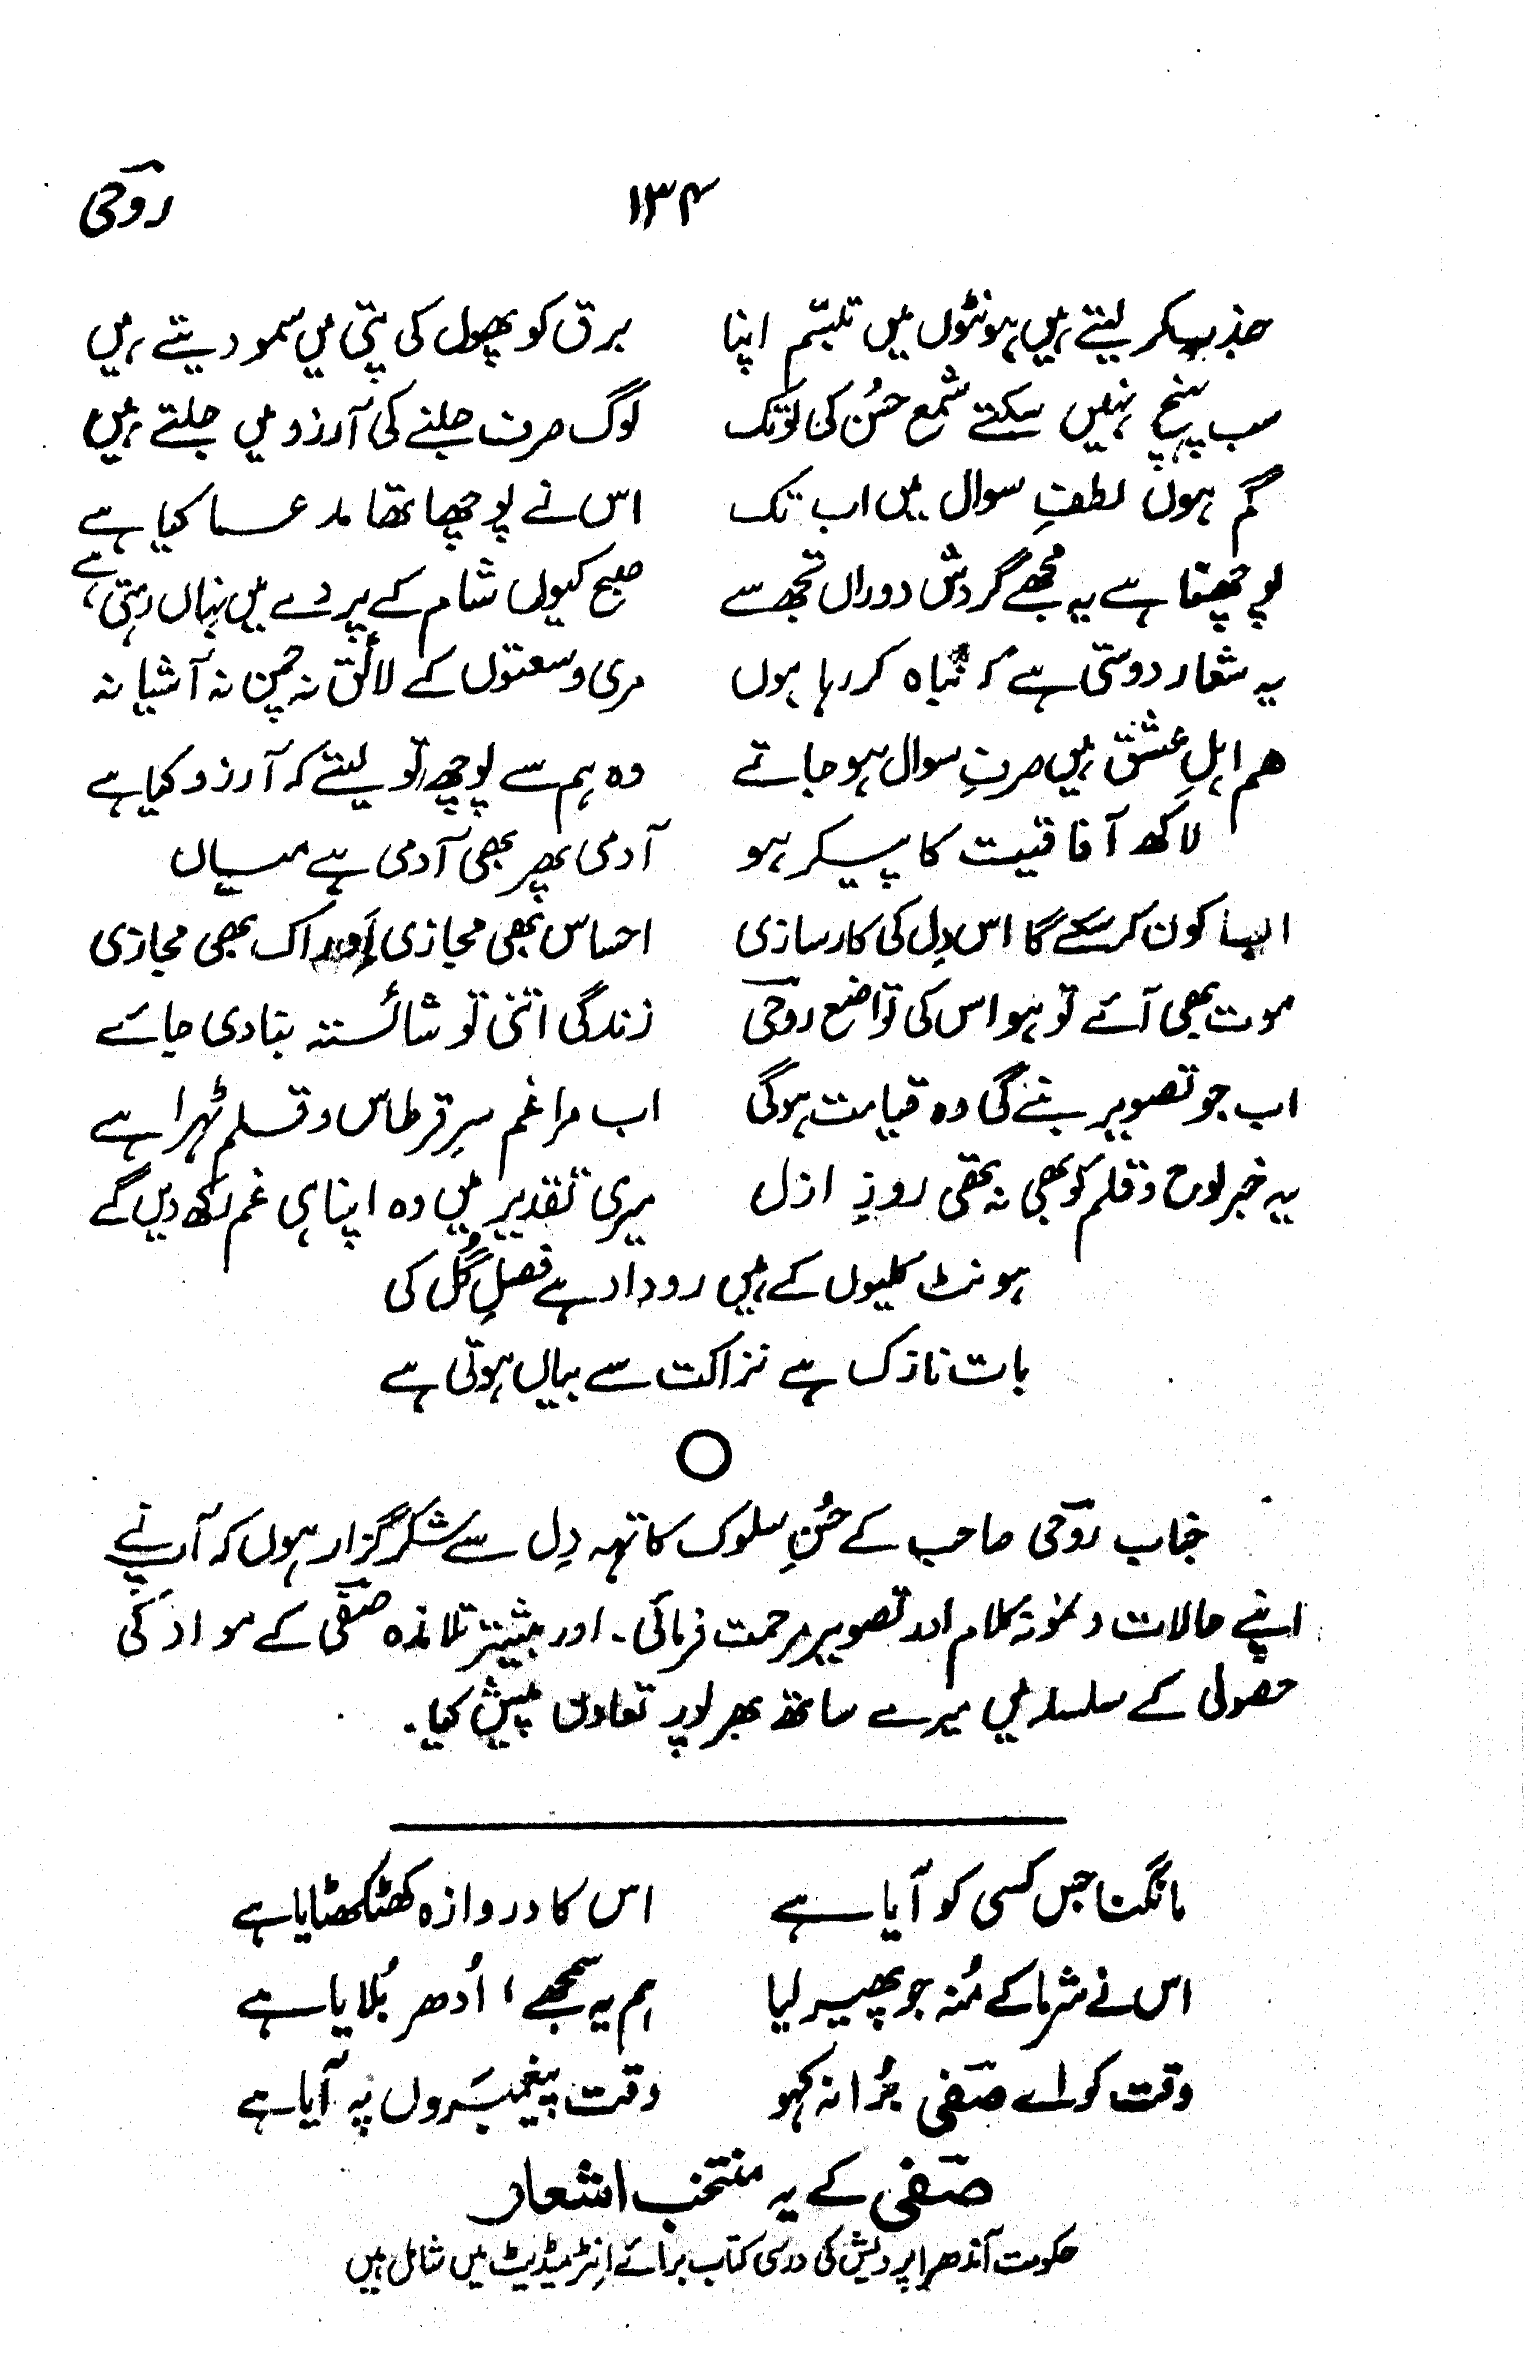 ۱۳۴ روحی
جذب کر لیتے ہیں ہونٹوں میں تبسّم اپنا برق کو پھول کی پتی میں سمو دیتے ہیں
سب پہنچ نہیں سکتے شمع حسُن کی لَو تک لوگ صرف جلنے کی آرزو میں جلتے ہیں
گم ہوں لطفِ سوال میں اب تک اس نے پوچھا تھا مدعا کیا ہے
پوچھتا ہے یہ مجھے گردش دوراں تجھ سے صبح کیوں شام کے پردے میں نہاں رہتی ہے
یہ شعار دوستی ہے کہ نباہ کر رہا ہوں مری وسعتوں کے لائق نہ چمن نہ آشیانہ
ہم اہلِ عشق ہیں صرفِ سوال ہو جاتے وہ ہم سے پوچھ تو لیتے کہ آرزو کیا ہے
لاکھ آفاقیت کا پیکر ہو آدمی پھر بھی آدمی ہے میاں
ایسا کون کر سکے گا اس دِل کی کارسازی احساس بھی مجازی اِدراک بھی مجازی
موت بھی آئے تو ہو اس کی تواضع روحی زندگی اتنی تو شائستہ بنا دی جائے
اب جو تصویر بنے گی وہ قیامت ہوگی اب مرا غم سرِ قرطاس و قلم ٹہرا ہے
یہ خبر لوح و قلم کو بھی نہ تھی روزِ ازل میری تقدیر میں وہ اپنا ہی غم لکھ دیں گے
ہونٹ کلیوں کے ہیں روداد ہے فصلِ گُل کی
بات نازک ہے نزاکت سے بیاں ہوتی ہے
جناب روحی صاحب کے حُسنِ سلوک کا تہہ دِل سے شکر گزار ہوں کہ آپ نے
اپنے حالات و نمونہ کلام اور تصویر مرحمت فرمائی۔ اور بیشتر تلامذہ صفی کے مواد کی
حصولی کے سلسلہ میں میرے ساتھ بھرپور تعاون پیش کیا۔
مانگنا جس کسی کو آیا ہے اس کا دروازہ کھٹکھٹایا ہے
اس نے شرما کے مُنہ جو پھیر لیا ہم یہ سمجھے، اُدھر بُلایا ہے
وقت کو اے صفی بُرا نہ کہو وقت پیغمبَروں پہ آیا ہے
صفی کے یہ منتخب اشعار
حکومت آندھرا پردیش کی درسی کتاب برائے اِنٹرمیڈیٹ میں شامل ہیں